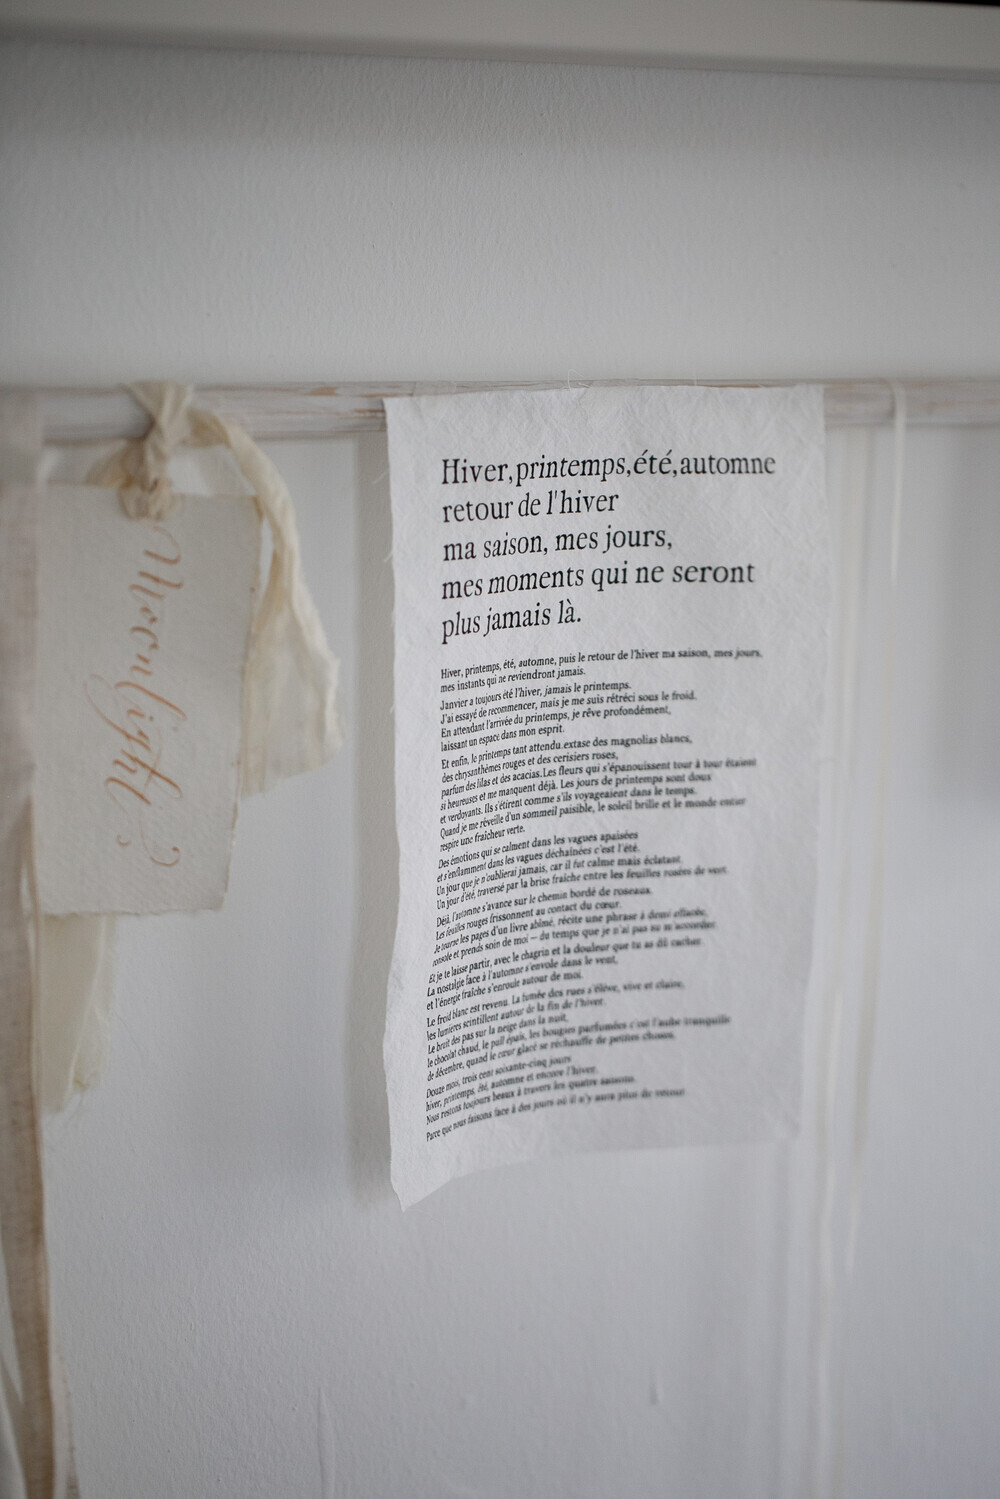 Moonlight
Hiver, printemps, été, automne
retour de l'hiver
ma saison, mes jours,
mes moments qui ne seront
plus jamais là.
Hiver, printemps, été, automne, puis le retour de l'hiver ma saison, mes jours,
mes instants qui ne reviendront jamais.
Janvier a toujours été l'hiver, jamais le printemps.
J'ai essayé de recommencer, mais je me suis rétréci sous le froid.
En attendant l'arrivée du printemps, je rêve profondément,
laissant un espace dans mon esprit.
Et enfin, le printemps tant attendu.extase des magnolias blancs,
des chrysanthèmes rouges et des cerisiers roses,
parfum des lilas et des acacias.Les fleurs qui s'épanouissent tour à tour étaient
si heureuses et me manquent déjà. Les jours de printemps sont doux
et verdoyants. Ils s'étirent comme s'ils voyageaient dans le temps.
Quand je me réveille d'un sommeil paisible, le soleil brille et le monde entier
respire une fraîcheur verte.
Des émotions qui se calment dans les vagues apaisées
et s'enflamment dans les vagues déchaînées c'est l'été.
Un jour que je n'oublierai jamais, car il fut calme mais éclatant.
Un jour d'été, traversé par la brise fraîche entre les feuilles rosées du vent.
Déjà, l'automne s'avance sur le chemin bordé de roseaux.
Les feuilles rouges frissonnent au contact du cœur.
Je tourne les pages d'un livre abîmé, récite une phrase à demi effacée,
console et prends soin de moi — du temps que je n'ai pas su m'accorder.
Et je te laisse partir, avec le chagrin et la douleur que tu as dû cacher.
La nostalgie face à l'automne s'envole dans le vent,
et l'énergie fraîche s'enroule autour de moi.
Le froid blanc est revenu. La fumée des rues s'élève, vive et claire,
les lumières scintillent autour de la fin de l'hiver.
Le bruit des pas sur la neige dans la nuit,
le chocolat chaud, le pull épais, les bougies parfumées c'est l'aube tranquille
de décembre, quand le cœur glacé se réchauffe de petites choses.
Douze mois, trois cent soixante-cinq jours
hiver, printemps, été, automne et encore l'hiver.
Nous restons toujours beaux à travers les quatre saisons.
Parce que nous faisons face à des jours où il n'y aura plus de retour